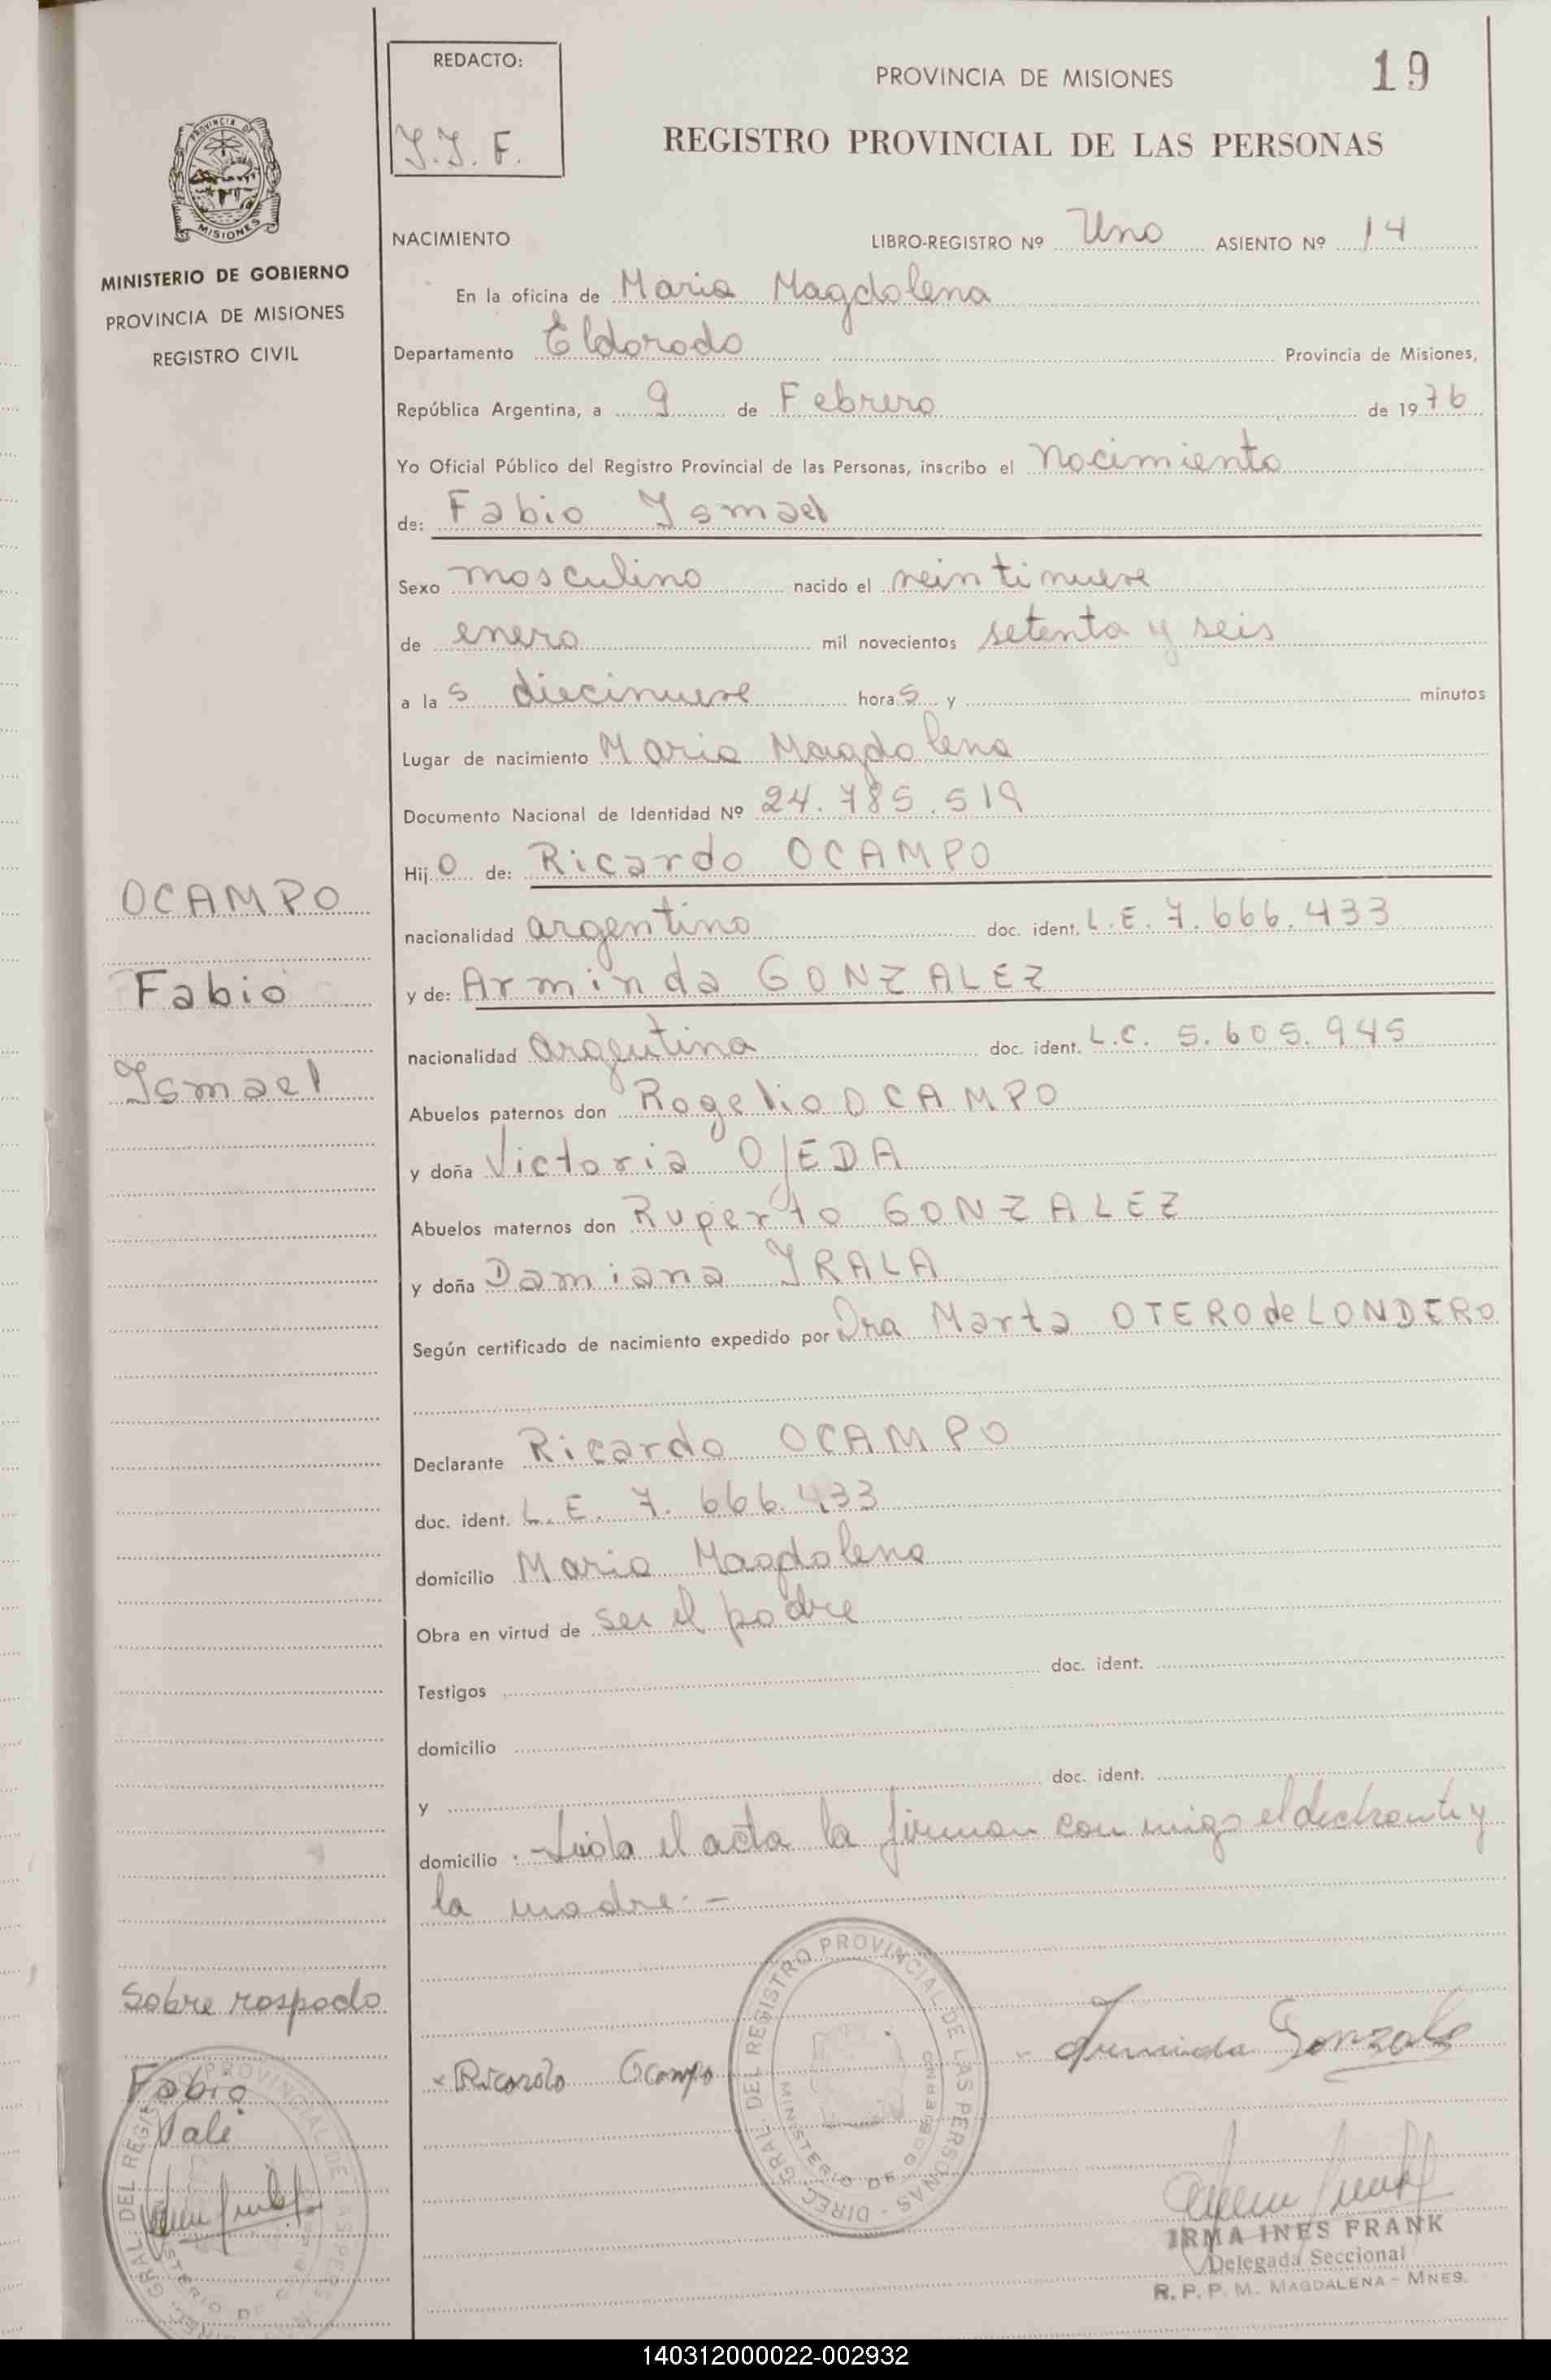 REDACTO:
I.I.F.
PROVINCIA DE MISIONES
19
REGISTRO PROVINCIAL DE LAS PERSONAS
PROVINCIA DE
MISIONES
MINISTERIO DE GOBIERNO
PROVINCIA DE MISIONES
REGISTRO CIVIL
NACIMIENTO
LIBRO-REGISTRO Nº Uno ASIENTO Nº 14
En la oficina de Maria Magdalena
Departamento Eldorado Provincia de Misiones,
República Argentina, a 9 de Febrero de 1976
Yo Oficial Público del Registro Provincial de las Personas, inscribo el nacimiento
de: Fabio Ismael
Sexo masculino nacido el veintinueve
de enero mil novecientos setenta y seis
a las diecinueve horas y minutos
Lugar de nacimiento Maria Magdalena
Documento Nacional de Identidad Nº 24.785.519
Hijo de: Ricardo OCAMPO
nacionalidad argentino doc. ident. L.E. 7.666.433
y de: Arminda GONZALEZ
nacionalidad argentina doc. ident. L.C. 5.605.945
Abuelos paternos don Rogelio OCAMPO
y doña Victoria OJEDA
Abuelos maternos don Ruperto GONZALEZ
y doña Damiana IRALA
Según certificado de nacimiento expedido por Dra Marta OTERO de LONDERO
Declarante Ricardo OCAMPO
doc. ident. L.E. 7.666.433
domicilio Maria Magdalena
Obra en virtud de ser el padre
Testigos doc. ident.
domicilio
y doc. ident.
domicilio .- Leida el acta la firman con migo el declarante y
la madre.-
OCAMPO
Fabio
Ismael
Sobre raspado
Fabio
Vale
DIREC. GRAL. DEL REGISTRO PROVINCIAL DE LAS PERSONAS
MINISTERIO DE GOBIERNO
Ricardo Ocampo
DIREC. GRAL. DEL REGISTRO PROVINCIAL DE LAS PERSONAS -
MINISTERIO DE GOBIERNO
Arminda Gonzalez
IRMA INES FRANK
Delegada Seccional
R.P.P. M. MAGDALENA - MNES.
140312000022-002932